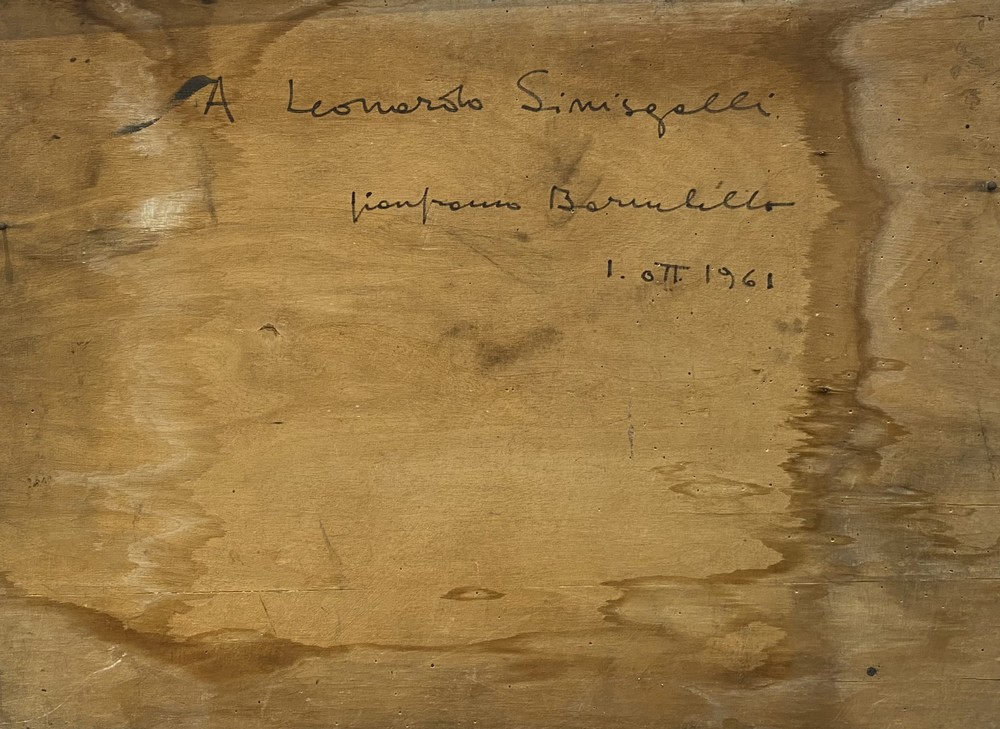 A Leonardo Sinisgalli
Gianfranco Baruchello
1. OTT 1961